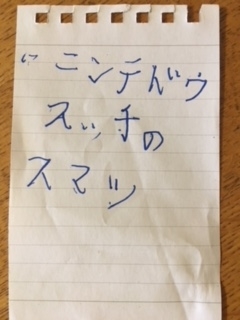 "ニンテドウ
スッチの
スマツ